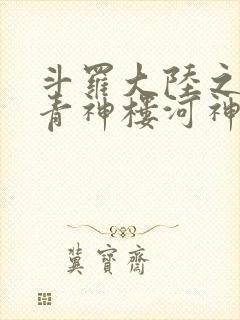 斗羅大陸之
青神樓河神
冀寶齋